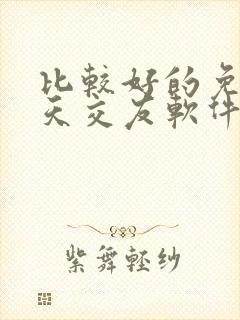 比較好的免
天交友軟件
紫舞輕纱